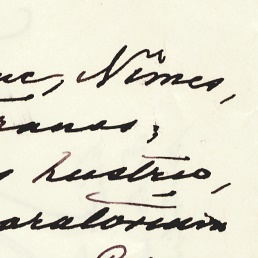 uc, Nîmes,
ranas;
s lustrio,
aratorium